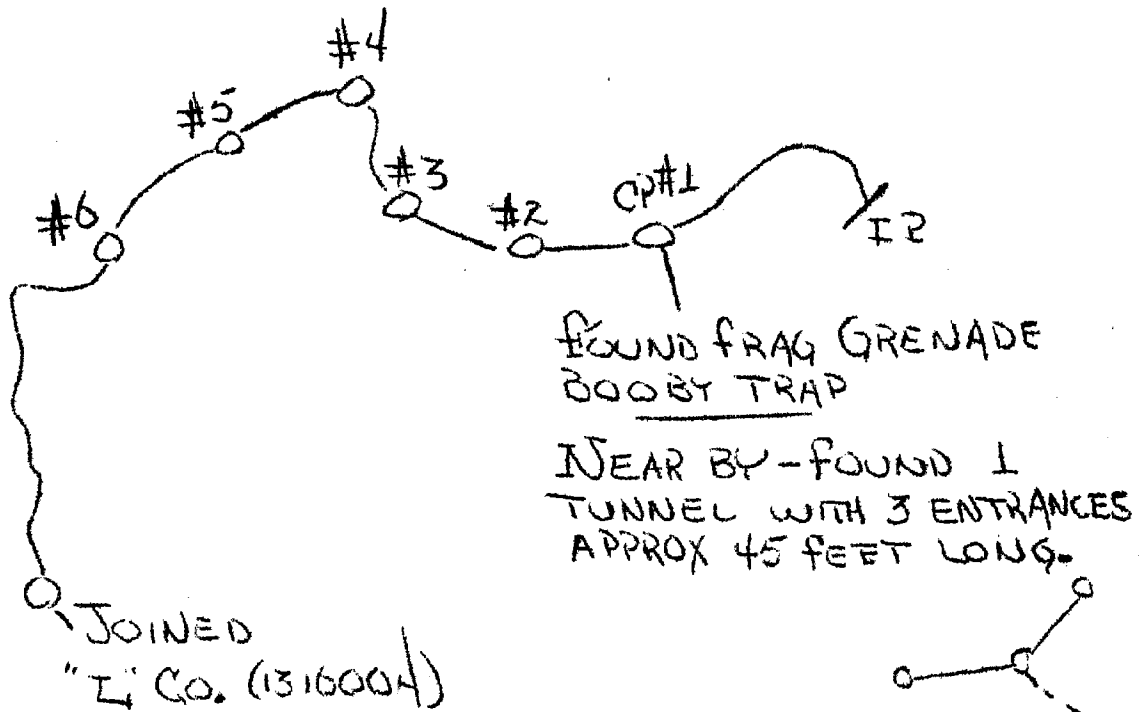 #4
#5
#3
CP#1
#6
#2
IP
FOUND FRAG GRENADE
BOOBY TRAP
NEAR BY - FOUND 1
TUNNEL WITH 3 ENTRANCES
APPROX 45 FEET LONG.
JOINED
"L" CO. (131000H)